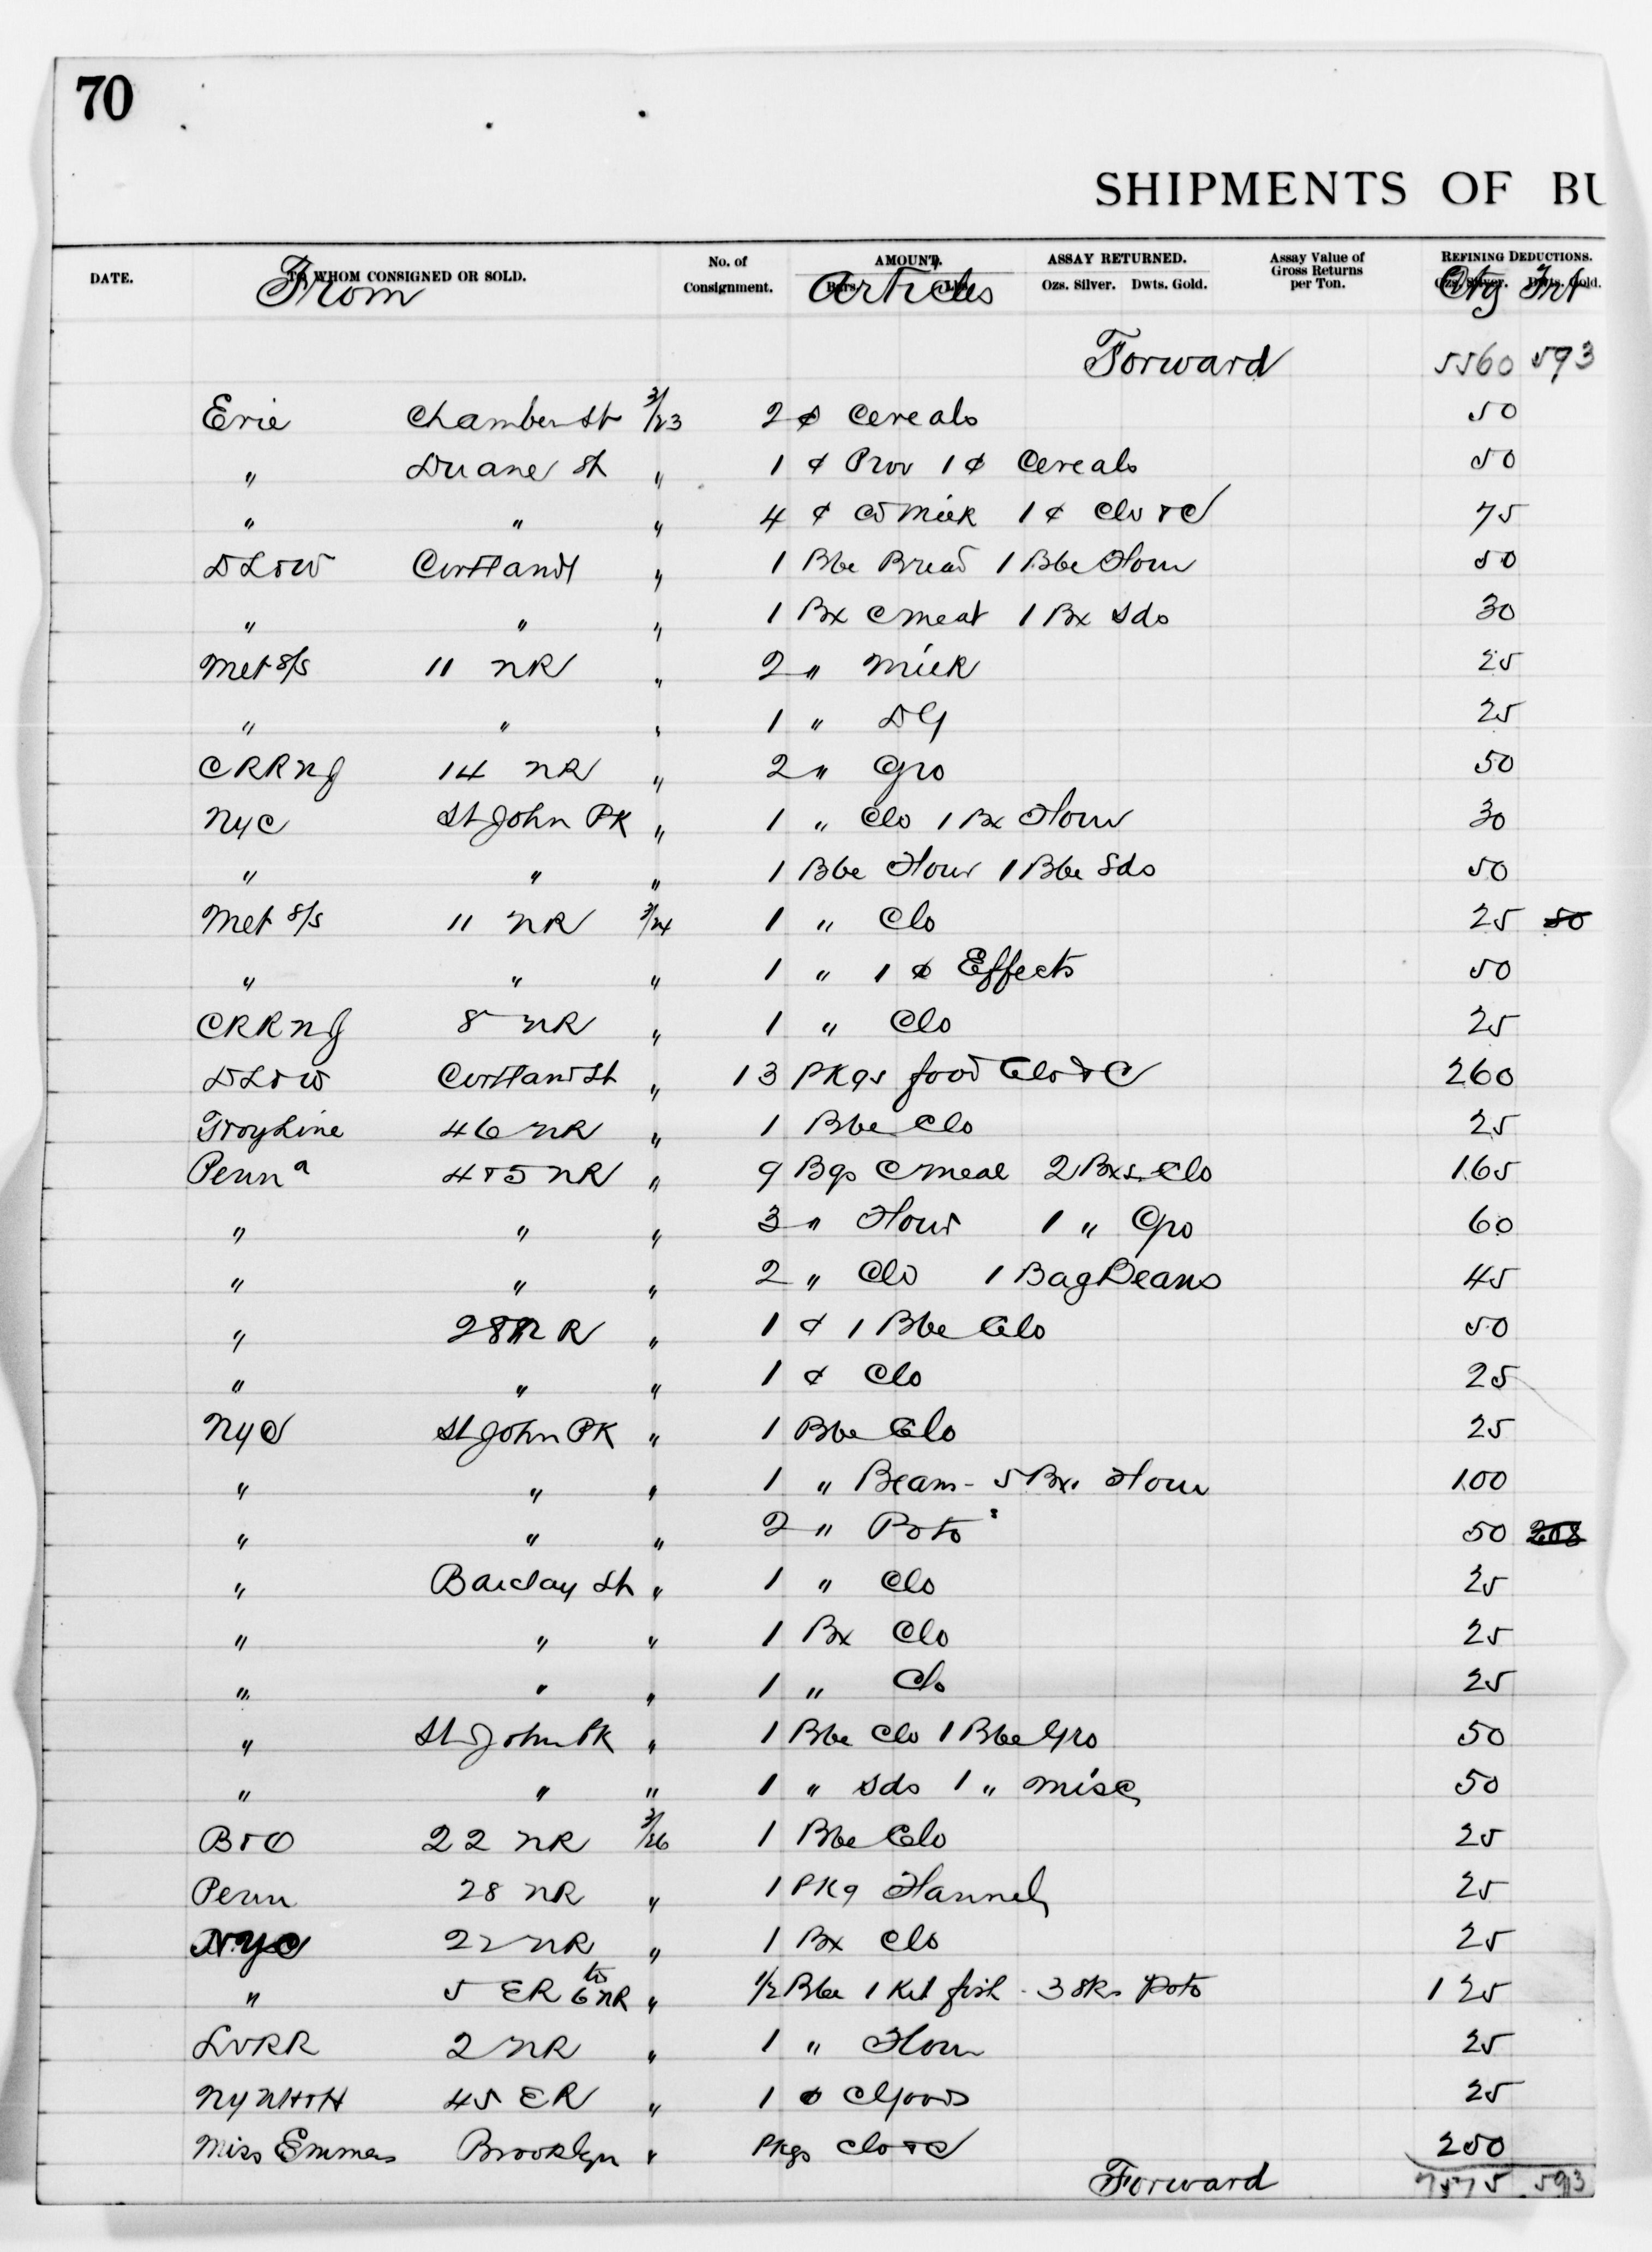 70
SHIPMENTS OF BU
DATE. TO WHOM CONSIGNED OR SOLD. No. of Consignment. AMOUNT. ASSAY RETURNED. Ozs. Silver. Dwts. Gold. Assay Value of Gross Returns per Ton. REFINING DEDUCTIONS. Ozs. Silver. Dwts. Gold.
From Articles Ctg Frt
Forward 5560 593
Erie Chamber St 3/23 2 ¢ Cereals 50
" Duane St " 1 ¢ Prov 1 ¢ Cereals 50
" " " 4 ¢ Cd Milk 1 ¢ Clo & C 75
D L & W Cortlandt " 1 Bbe Bread 1 Bbe Flour 50
" " " 1 Bx C Meat 1 Bx Sds 30
Met S/S 11 NR " 2 " Milk 25
" " " 1 " DG 25
CRRNJ 14 NR " 2 " Gro 50
NYC St John PK " 1 " Clo 1 Bx Flour 30
" " " 1 Bbe Flour 1 Bbe Sds 50
Met S/S 11 NR 3/24 1 " Clo 25 50
" " " 1 " 1 ¢ Effects 50
CRRNJ 8 NR " 1 " Clo 25
D L & W Cortland St " 13 PKgs food Clo & C 260
Troy Line 46 NR " 1 Bbe Clo 25
Penn a 4 & 5 NR " 9 Bgs C Meal 2 Bxs Clo 165
" " " 3 " Flour 1 " Gro 60
" " " 2 " Clo 1 Bag Beans 45
" 28 NR " 1 ¢ 1 Bbe Clo 50
" " " 1 ¢ Clo 25
NYC St John PK " 1 Bbe Clo 25
" " " 1 " Beans - 5 Bxs Flour 100
" " " 2 " Pots 50 208
" Barclay St " 1 " Clo 25
" " " 1 Bx Clo 25
" " " 1 " Clo 25
" St John PK " 1 Bbe Clo 1 Bbe Gro 50
" " " 1 " Sds 1 " Misc 50
B & O 22 NR 3/26 1 Bbe Clo 25
Penn 28 NR " 1 PKg Flannels 25
NYC 22 NR " 1 Bx Clo 25
" 5 ER to 6 NR " 1/2 Bbe 1 Kit fish - 3 Sks Pots 125
LVRR 2 NR " 1 " Flour 25
NYNH&H 45 ER " 1 ¢ C Goods 25
Miss Emmens Brooklyn " Pkgs Clo & C 250
Forward 7575 593